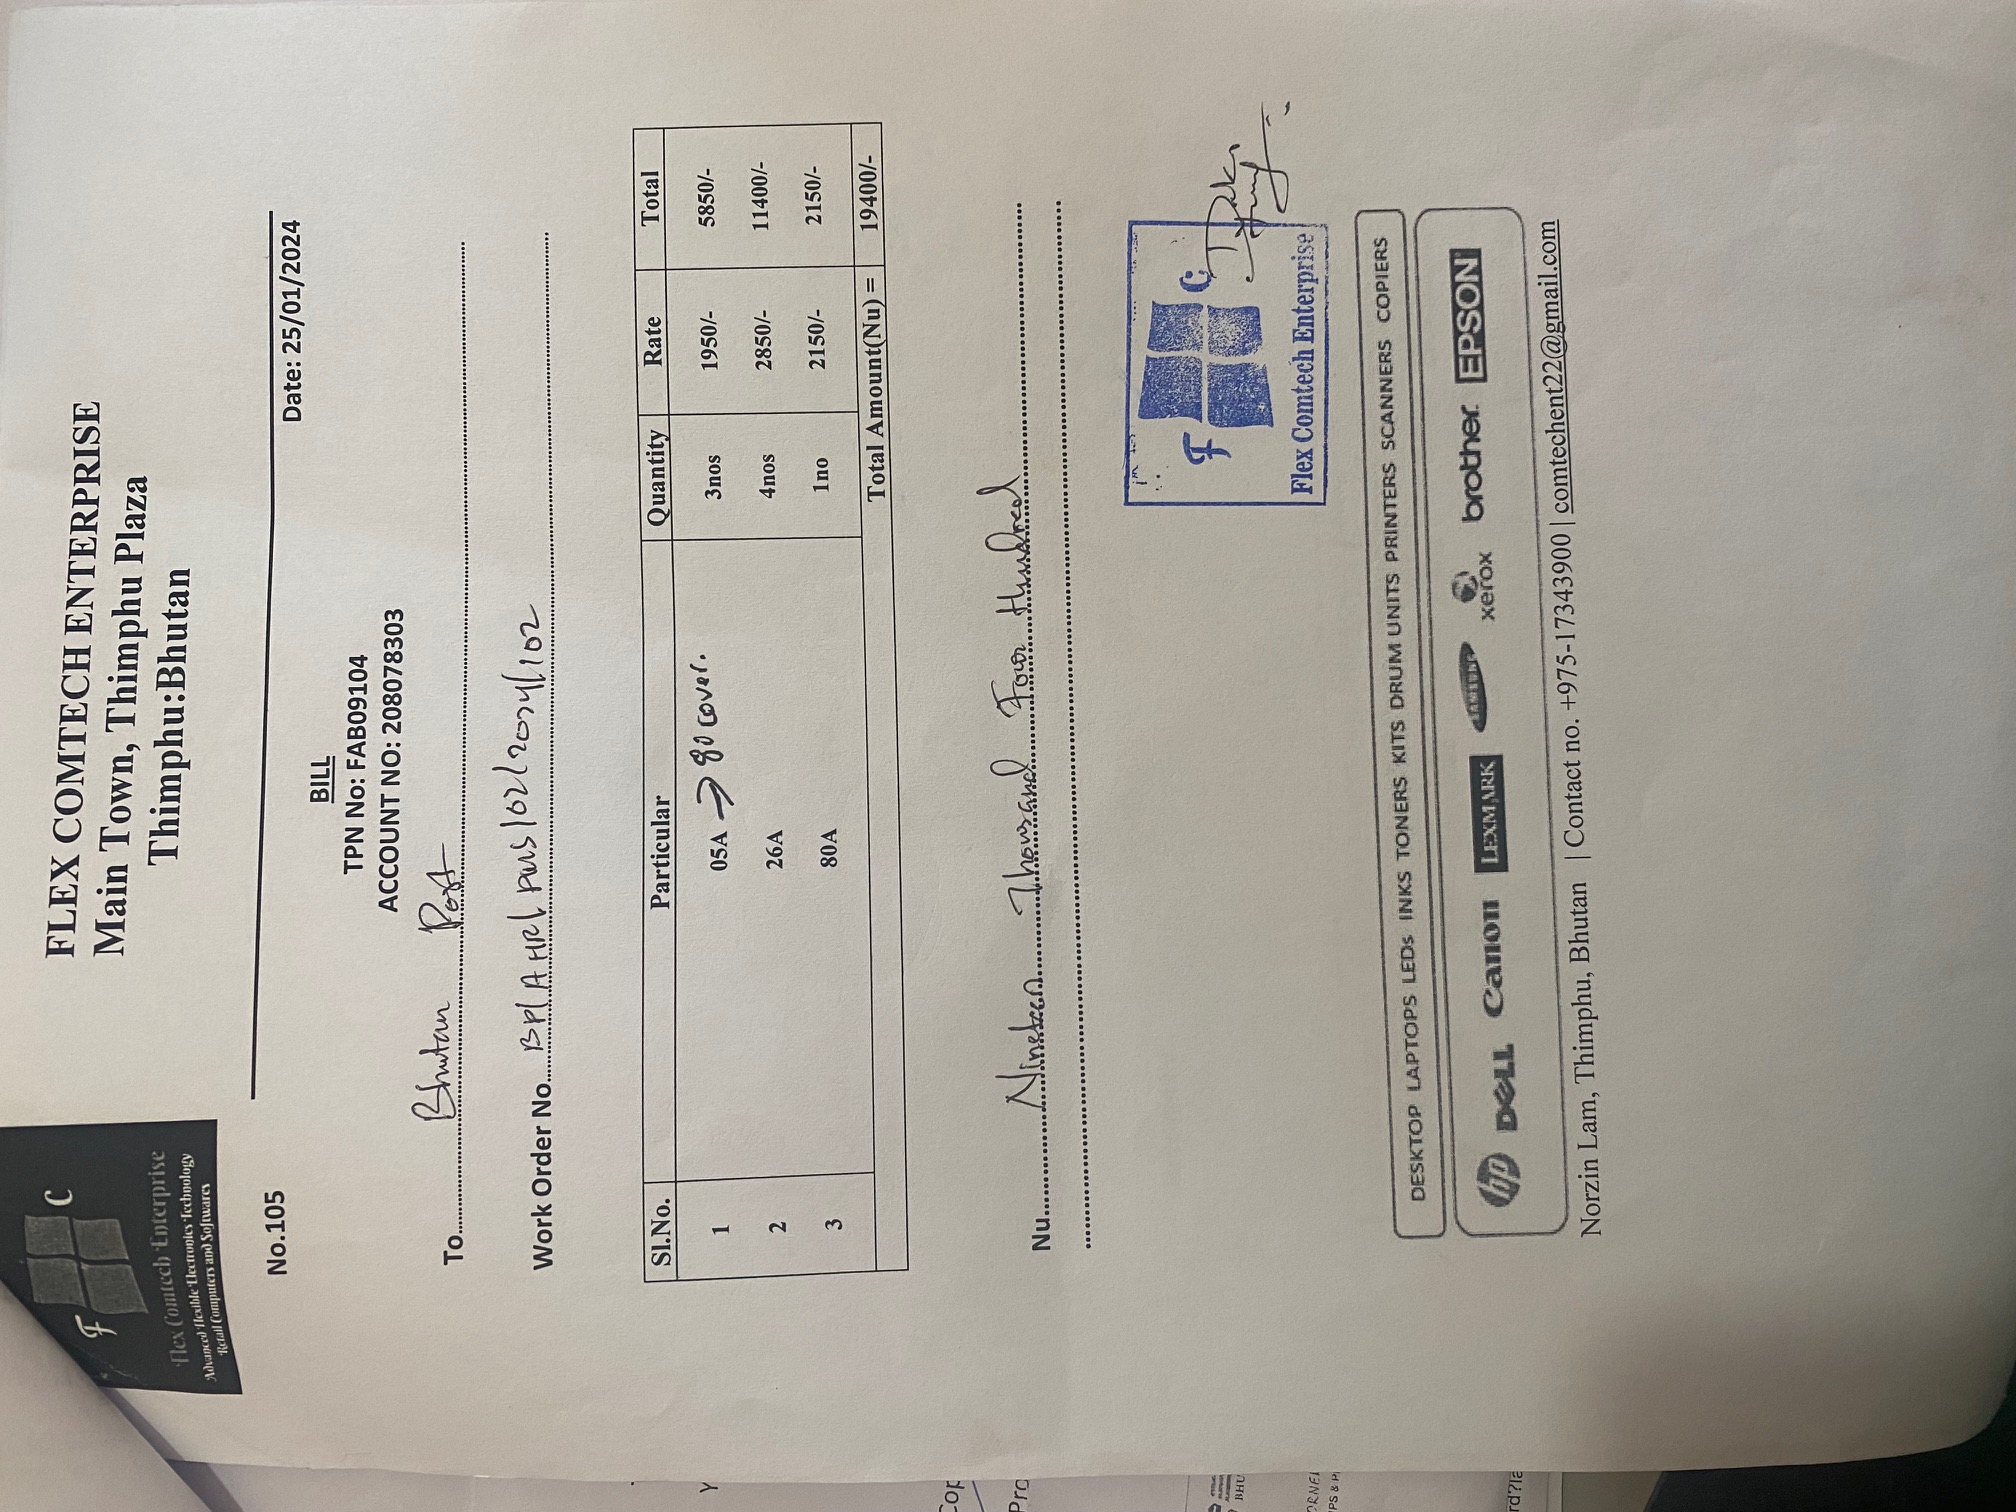 F C
Flex Comtech Enterprise
Advanced Flexible Electronics Technology
Retail Computers and Softwares
FLEX COMTECH ENTERPRISE
Main Town, Thimphu Plaza
Thimphu:Bhutan
No.105
Date: 25/01/2024
BILL
TPN No: FAB09104
ACCOUNT NO: 208078303
To Bhutan Post
Work Order No BP/AHR/PMS/02/2024/102
Sl.No. Particular Quantity Rate Total
1 05A → 80 cover. 3nos 1950/- 5850/-
2 26A 4nos 2850/- 11400/-
3 80A 1no 2150/- 2150/-
Total Amount(Nu) = 19400/-
Nu Nineteen Thousand Four Hundred
F C
Flex Comtech Enterprise
DESKTOP LAPTOPS LEDs INKS TONERS KITS DRUM UNITS PRINTERS SCANNERS COPIERS
hp DELL Canon LEXMARK SAMSUNG xerox brother EPSON
Norzin Lam, Thimphu, Bhutan | Contact no. +975-17343900 | comtechent22@gmail.com